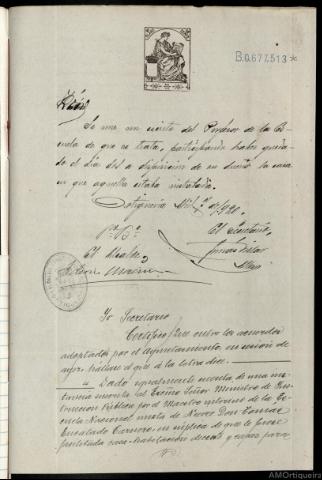 B.0.677,513 *
Se une un oficio del Profesor de la Es-
cuela de que se trata, participando haber queda-
do el día dos a disposición de su dueño la casa
en que aquella estaba instalada.
Ortigueira 1920.
Vº Bº El Secretario,
El Alcalde,
Yo Secretario
Certifico: Que entre los acuerdos
adoptados por el Ayuntamiento en sesión de
ayer, hállase el que a la letra dice.
"Dada igualmente cuenta de una ins-
tancia elevada al Excmo Señor Ministro de Ins-
trucción Pública por el Maestro interino de la Es-
cuela Nacional mixta de Nieves Don Tomás
Encalado Carnero, en súplica de que le fuese
facilitada casa-habitación decente y capaz para
AMOrtigueira